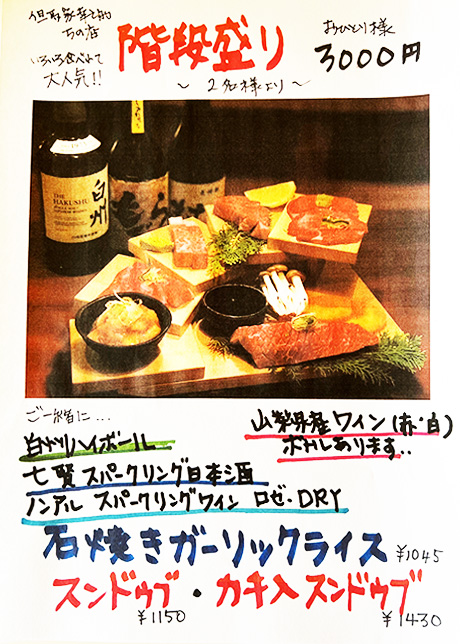 階段盛り
おひとり様
3000円
いろいろ食べれて
大人気!!
~ 2名様より ~
THE
HAKUSHU
白州
ご一緒に...
白州ハイボール
七賢 スパークリング日本酒
ノンアル スパークリングワイン ロゼ・DRY
山梨県産ワイン(赤・白)
ボトルあります..
石焼きガーリックライス ¥1045
スンドゥブ・カキ入スンドゥブ
¥1150
¥1430